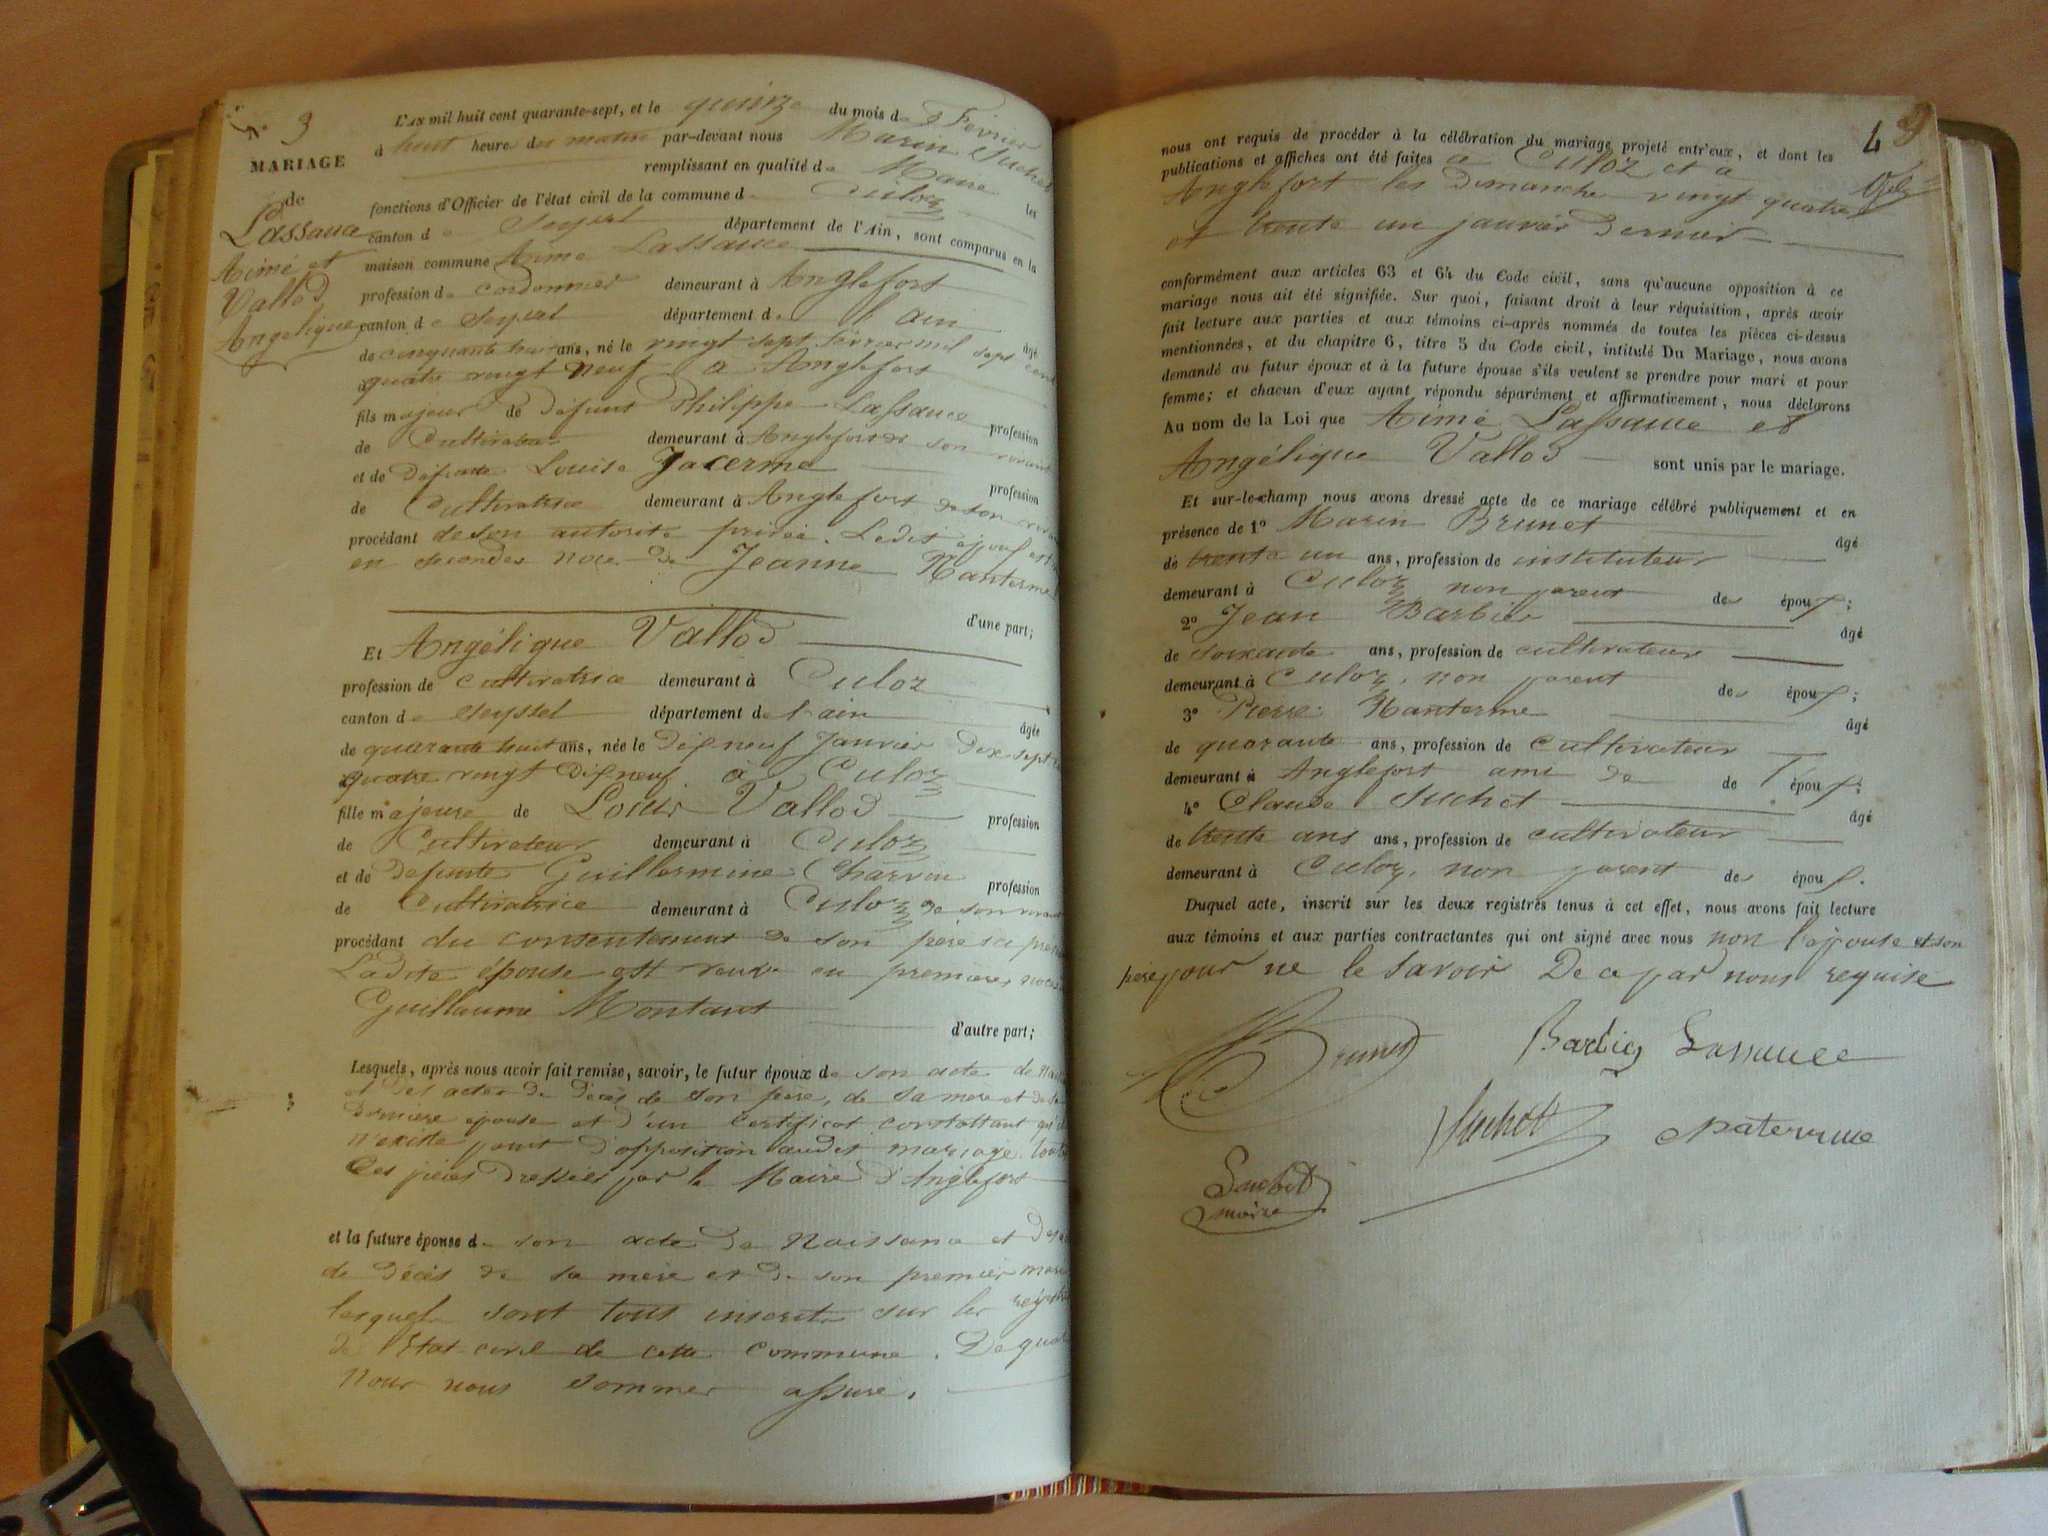 N° 3
MARIAGE
de
Lassauce
Aimé et
Vallod
Angélique
L'AN mil huit cent quarante-sept, et le quinze du mois de Février
à huit heures du matin par-devant nous Marin Suchet
remplissant en qualité de Maire les
fonctions d'Officier de l'état civil de la commune de Culoz
canton de Seyssel département de l'Ain, sont comparus en la
maison commune Aimé Lassauce
profession de cordonnier demeurant à Anglefort
canton de Seyssel département de l'ain âgé
de cinquante huit ans, né le vingt sept février mil sept cent
quatre vingt neuf à Anglefort
fils majeur de défunt Philippe Lassauce profession
de Cultivateur demeurant à Anglefort de son vivant
et de défunte Louise Jacerme profession
de Cultivatrice demeurant à Anglefort de son vivant
procédant de son autorité privée. Ledit époux est
en secondes noce de Jeanne Nanterme
d'une part;
Et Angélique Vallod
profession de cultivatrice demeurant à Culoz
canton de Seyssel département de l'ain âgée
de quarante huit ans, née le dix neuf Janvier dix sept
quatre vingt dix neuf à Culoz
fille majeure de Louis Vallod profession
de Cultivateur demeurant à Culoz
et de defunte Guillermine Charvin profession
de Cultivatrice demeurant à Culoz de son vivant
procédant du consentement de son père ici
Ladite épouse est veuve en premières noces
Guillaume Montant
d'autre part;
Lesquels, après nous avoir fait remise, savoir, le futur époux de son acte de
et des actes de décès de son père, de sa mère et de sa
dernière épouse et d'un certificat constatant qu'il
n'existe point d'opposition audit mariage. toutes
Ces pièces dressées par le Maire d'Anglefort
et la future épouse de son acte de Naissance et des
de décès de sa mère et de son premier mari
lesquels sont tous inscrits sur les registres
de l'Etat civil de cette commune. De quoi
Nous nous sommes assuré.
49
nous ont requis de procéder à la célébration du mariage projeté entr'eux, et dont les
publications et affiches ont été faites à Culoz et à
Anglefort les dimanche vingt quatre
et trente un janvier dernier
conformément aux articles 63 et 64 du Code civil, sans qu'aucune opposition à ce
mariage nous ait été signifiée. Sur quoi, faisant droit à leur réquisition, après avoir
fait lecture aux parties et aux témoins ci-après nommés de toutes les pièces ci-dessus
mentionnées, et du chapitre 6, titre 5 du Code civil, intitulé Du Mariage, nous avons
demandé au futur époux et à la future épouse s'ils veulent se prendre pour mari et pour
femme; et chacun d'eux ayant répondu séparément et affirmativement, nous déclarons
Au nom de la Loi que Aimé Lassauce et
Angélique Vallod sont unis par le mariage.
Et sur-le-champ nous avons dressé acte de ce mariage célébré publiquement et en
présence de 1° Marin Brunet âgé
de trente un ans, profession de instituteur
demeurant à Culoz non parent des époux;
2° Jean Barbier âgé
de soixante ans, profession de cultivateur
demeurant à Culoz, non parent des époux;
3° Pierre Nanterme âgé
de quarante ans, profession de cultivateur
demeurant à Anglefort ami de de l'époux;
4° Claude Suchet âgé
de trente ans ans, profession de cultivateur
demeurant à Culoz, non parent des époux.
Duquel acte, inscrit sur les deux registres tenus à cet effet, nous avons fait lecture
aux témoins et aux parties contractantes qui ont signé avec nous non l'épouse et son
père pour ne le savoir De ce par nous requise
Brunet Barbier Lassauce
Suchet Naterme
Suchet
maire